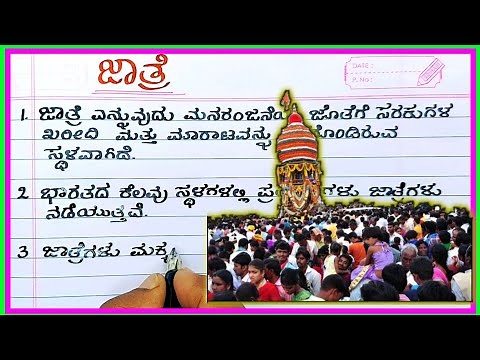 ಜಾತ್ರೆ
DATE:
P. NO.:
1. ಜಾತ್ರೆ ಎನ್ನುವುದು ಮನರಂಜನೆಯ ಜೊತೆಗೆ ಸರಕುಗಳ
ಖರೀದಿ ಮತ್ತು ಮಾರಾಟವನ್ನು ಹೊಂದಿರುವ
ಸ್ಥಳವಾಗಿದೆ.
2 ಭಾರತದ ಕೆಲವು ಸ್ಥಳಗಳಲ್ಲಿ ಜಾತ್ರೆಗಳು
ನಡೆಯುತ್ತವೆ.
3 ಜಾತ್ರೆಗಳು ಮಕ್ಕ